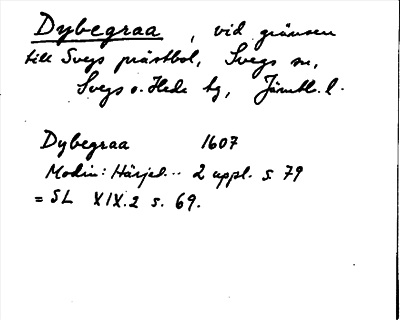 Dybegraa, vid gränsen
till Svegs prästbol, Svegs sn,
Svegs o. Hede tg, Jämtl. l.
Dybegraa 1607
Modin: Härjed... 2 uppl. s. 79
= SL XIX.2 s. 69.